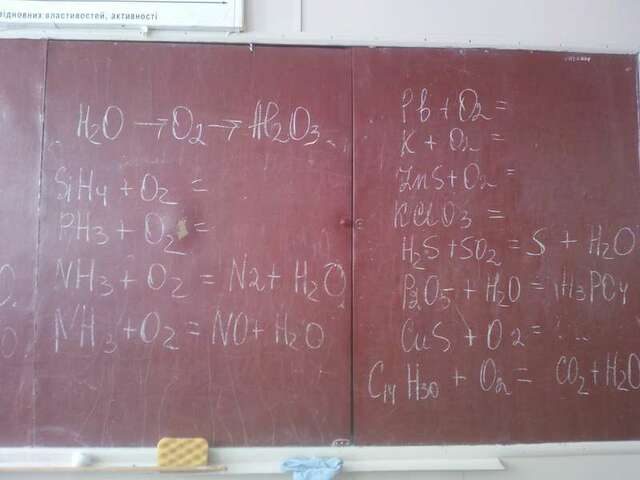 відновних властивостей, активності
H2O → O2 → Al2O3
SiH4 + O2 =
PH3 + O2 =
NH3 + O2 = N2 + H2O
NH3 + O2 = NO + H2O
Pb + O2 =
K + O2 =
ZnS + O2 =
KClO3 =
H2S + SO2 = S + H2O
P2O5 + H2O = H3PO4
CuS + O2 = ...
C14H30 + O2 = CO2 + H2O